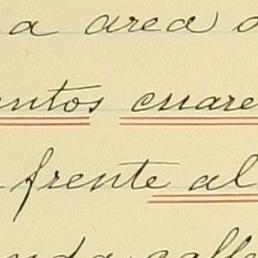 a area
entos cuare
frente al
nda calle